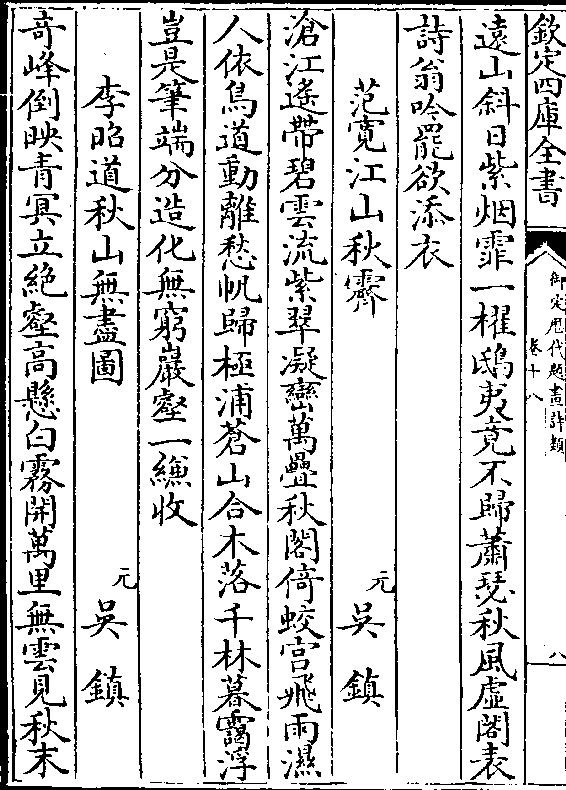 欽定四庫全書
御定歷代題畫詩類
卷十八
八
遠山斜日紫烟霏一櫂鴟夷竟不歸蕭瑟秋風虛閣表
詩翁吟罷欲添衣
范寛江山秋霽
元
吳鎮
滄江遙帶碧雲流紫翠凝巒萬疊秋閣倚蛟宫飛雨濕
人依鳥道動離愁帆歸極浦蒼山合木落千林暮靄浮
豈是筆端分造化無窮巖壑一緫收
李昭道秋山無盡圖
元
吳鎮
奇峰倒映青冥立絶壑高懸白霧開萬里無雲見秋末